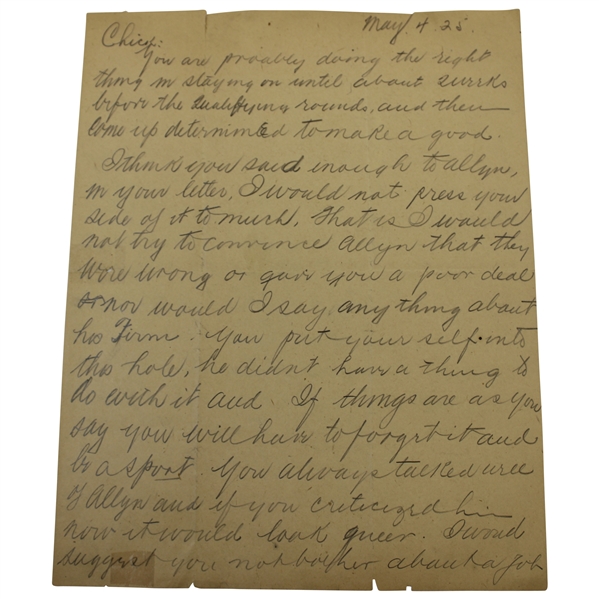 May 4. 25.
Chick:
You are proably doing the right
thing in staying on until about 2 weeks
before the Qualifying rounds, and then
come up determined to make a good.
I think you said enough to Allyn,
in your letter, I would not press your
side of it to much, that is I would
not try to convince Allyn that they
were wrong or gave you a poor deal
or nor would I say any thing about
his Firm. You put your self into
this hole, he didn't have a thing to
do with it and. If things are as you
say you will have to forget it and
be a sport. You always talked well
of Allyn and if you criticized him
now it would look queer. I woud
suggest you not bother about a job